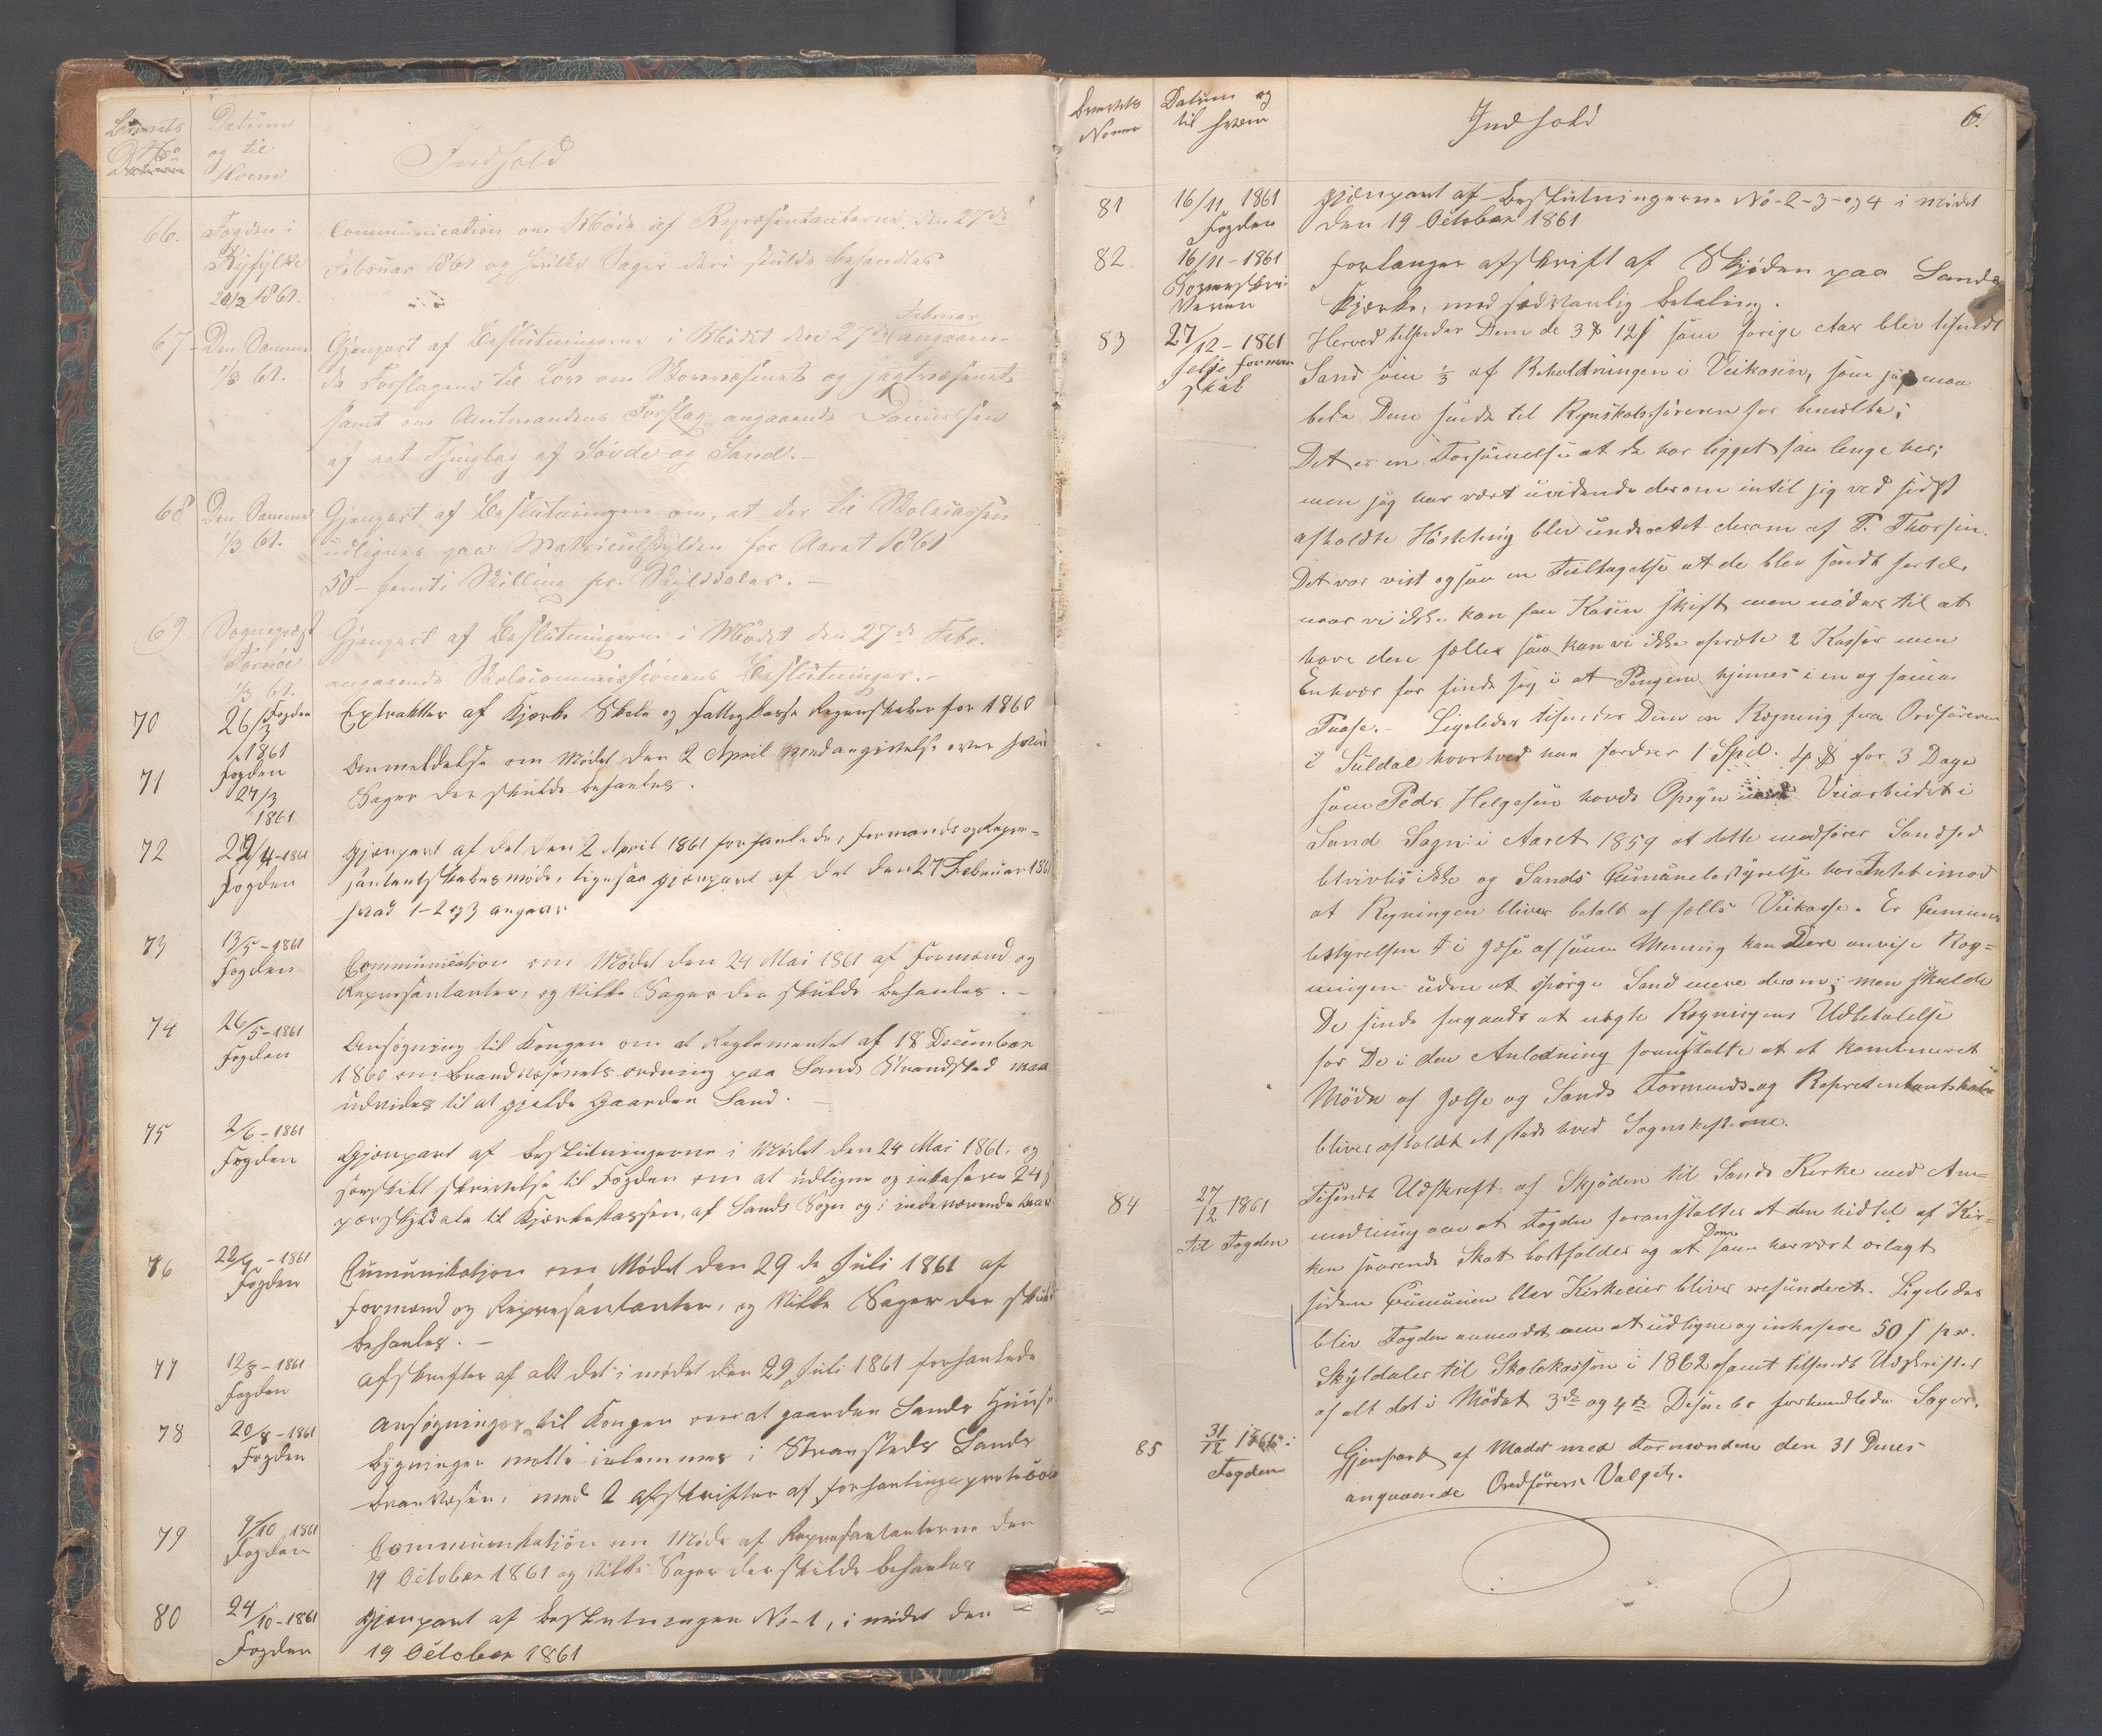 Brevets
No
Datum
og til
Hvem
Indhold
66.
Fogden i
Ryfylke
20/2 1861.
Communication om Møde af Repræsentanterne den 27de
Februar 1861 og hvilke Sager deri skulde behandles
67
Den Samme
1/3 61.
Februar
Gjenpart af Beslutningerne i Mødet den 27de angaaen-
de Forslagene til Lov om Skovvæsenet og jagtvæsenet
samt om Amtmandens Forslag angaaende Dannelsen
af eet Thinglag af Søvde og Sand.-
68
Den Samme
1/3 61.
Gjenpart af Beslutningen om, at der til Skolecassen
udlignes paa Matriculskylden for Aaret 1861
50 - femti Skilling pr. Skylddaler. -
69
Sognepræst
Tornöe
1/3 61.
Gjenpart af Beslutningerne i Mødet den 27de Febr.
angaaende Skolecommissionens Beslutninger.-
70
26/3 Fogden
1861
Extrakter af Kjærke Skole og Fattigkasse Regenskaber for 1860
71
Fogden
27/3
1861
Anmeldelse om Mødet den 2 April med angivelse over hvad
Sager der skulde behanles.
72
22/4-1861
Fogden
Gjenpart af det den 2 April 1861 forhanlede, formands og Repre-
santantskabesmøde, ligesaa Gjenpart af det den 27 Februar 1861
hvad 1-2 og 3 angaar
73
13/5-1861
Fogden
Communication om Mødet den 24 Mai 1861 af Formænd og
Repræsantanter, og vilke Sager der skulde behanles. -
74
26/5-1861
Fogden
Ansøgning til Kongen om at Reglementet af 18 December
1860 om Brandvæsenets ordning paa Sands Strandsted maa
udvides til at gjelde Gaarden Sand. -
75
2/6-1861
Fogden
Gjenpart af Beslutningerne i Mødet den 24 Mai 1861, og
serskilt skrivelse til Fogden om at udligne og inkasere 24 s
pærskyldale til Kjærkekassen, af Sands Sogn og i indeværende aar
76
22/7-1861
Fogden
Cumunikation om Mødet den 29de Juli 1861 af
formænd og Repræsantanter, og vilke Sager der skulde
behanles. -
77
12/8-1861
Fogden
Afskrifter af alt det i mødet den 29 Juli 1861 forhanlede
78
20/8-1861
Fogden
Ansøgninger til Kongen om at gaarden Sands Huus-
bygninger motte inlemmes i Stranstedets Sands
branvesen, med 2 afskrifter af forhanlingsprotocol
79
9/10 1861
Fogden
Communikation om Møde af Repræsantanterne den
19 October 1861 og vilke Sager der skulde behanles
80
24/10-1861
Fogden
Gjenpart af Beslutningen No-1, i mødet den
19 October 1861
Brevets
Datum og
til hvem
Indhold
6.
81
16/11 1861
Fogden
Gjenpart af Beslutningerne No-2-3-og 4 i mødet
den 19 October 1861
82
16/11-1861
Sorenskri-
veren
forlanger afskrift af Skjøden paa Sands
Kjærke, mod sedvanlig betaling.
83
27/12-1861
Jelse Forman
skab
Herved tilsender Dem de 3 12 s som forige Aar blev tilsendt
Sand som 1/3 af Beholdningen i Veikasin, som jeg maa
bede Dem sende til Regnskabsføreren for benevlte;
Det er en Forsømmelse at de har ligget saa lenge her;
men jeg har vært uvidende derom intil jeg ved sidst
afholdte Høstting blev underettet derom af T. Thorsen.
Det var vist ogsaa en Feiltagelse at de blev sendt
naar vi ikke kan faa Kasin skift men nødes til at
have den felles saa kan vi ikke oprete 2 Kasser men
Enhver for finde sig i at Pengene hjemes i en og samme
Ligeledes tilsendes Dem en Regning fra Ordføreren
i Suldal hvorved han fordrer 1 Spd. 4 for 3 Dage
som Peder Helgesen havde Opsyn ved Veiarbeidet i
Sand Sogn i Aaret 1859 at dette medfører Sandhed
betvivles ikke og Sands Cumunebestyrelse har Intet imod
at Regningen bliver betalt af felles Veikasse. Er Cumune-
bestyrelsen i Jelse af samme Mening kan Dere anvise Reg-
ningen uden at spørge Sand mere derom; men skulde
De finde Jugande at negte Regningens Udbetalelse
for De i den Anledning foranstalte at et kombineret
Møde af Jelse og Sands Formands- og Representantskab
bliver afholdt et steds hved Sogneskiftene.
84
27/12 1861
Til Fogden
Tilsendt Udskreft af Skjøden til Sands Kerke med An-
modning om at Fogden foranstalter at den hidtil af Kir-
ken svarende Skat bortfalder og at Dem som har vært erlagt
siden Cumunen blev Kirkeeier bliver refunderet. Ligeledes
blev Fogden anmodet om at udligne og inkasere 50 s pr.
Skyldaler til Skolekassen i 1862 samt tilsendt Udskrifter
af alt det i Mødet 3de og 4de Desember forhandlede Sager.
85
31/12 1861
Fogden
Gjenpart af Mødet med Formændene den 31 Decbr
angaaende Ordførers Valget.